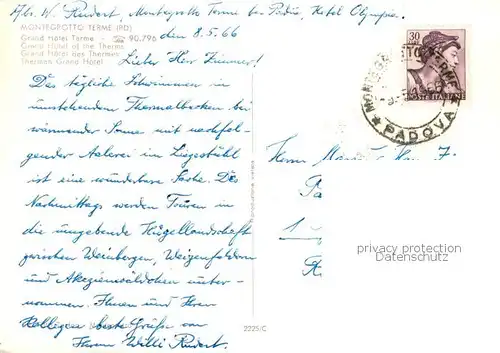 Abs. W. Rudert, Montegrotto Terme bei Padua, Hotel Olympia.
MONTEGROTTO TERME (PD)
Grand Hotel Terme - ☎ 90.796
Grand Hotel of the Therms
Grand Hôtel des Thermes
Thermen Grand Hôtel
den 8.5.66
Lieber Herr Zimmer!
Das tägliche Schwimmen in
umstehendem Thermalbecken bei
wärmender Sonne mit nachfol-
gender Aalerei im Liegestuhl
ist eine wunderbare Sache. Des
Nachmittags werden Touren in
die umgebende Hügellandschaft
zwischen Weinbergen, Weizenfeldern
und Akazienwäldchen unter-
nommen. Ihnen und Ihren
Kollegen beste Grüße von
Herrn Willi Rudert.
2225/C
30
POSTE ITALIANE
MONTEGROTTO TERME
★ PADOVA ★
Herrn
privacy protection
Datenschutz